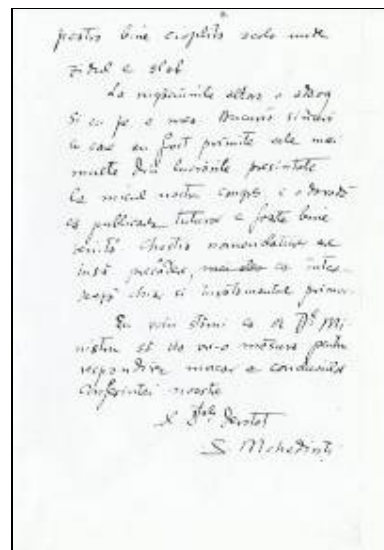 piatra bine cioplita acolo unde
zidul e slab
La rugăciunile altor o adaog
si eu pe a mea. Bucuria sinceră
cu care au fost primite cele mai
multe din lucrările presintate
la micul nostru congres, e o dovadă
că publicarea tuturor e foarte bine
venită. Chestia nomenclaturei are
însă precădere, ca inte-
resează chiar si învatamentul primar.
Eu viu stărui ca Dl Mi-
nistru să ia vre-o măsură pentru
respândirea macar a concluziilor
Conferintei noastre
Al Dtale devotat
S. Mehedinți